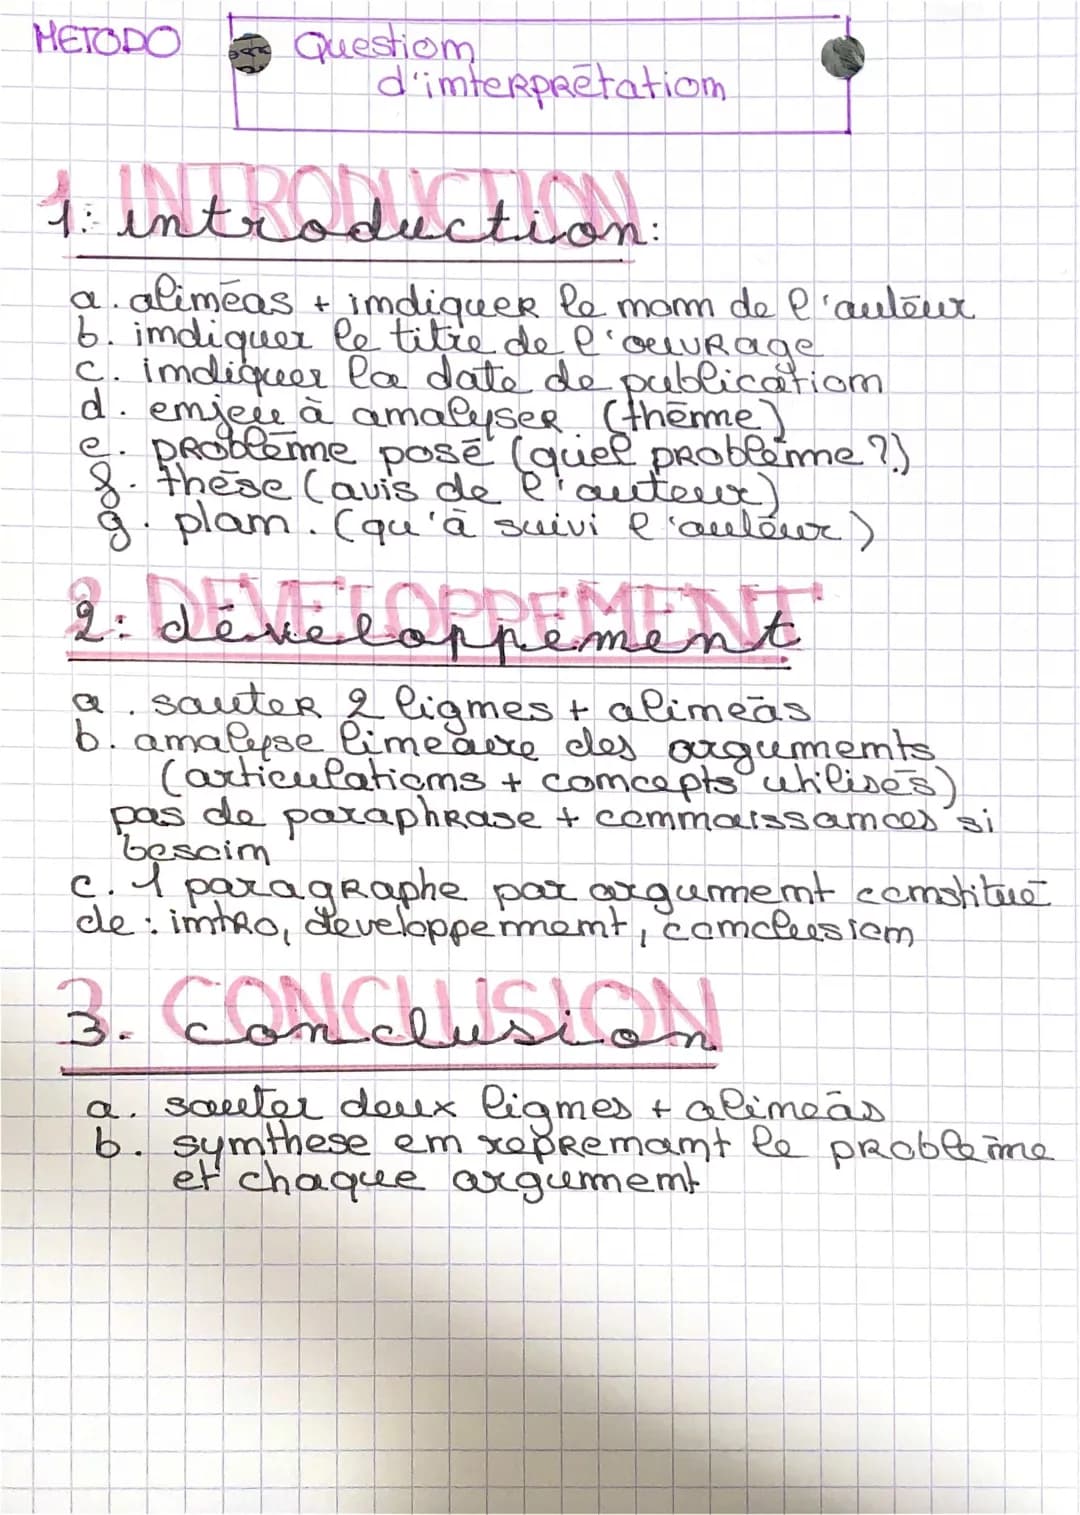 METODO
Question
d'interprétation
1: INTRODUCTION
1: introduction:
a. alinéas + indiquer le nom de l'auteur
b. indiquer le titre de l'oeuvrage
c. indiquer la date de publication
d. enjeu à analyser (thème)
e. problème posé (quel problème?)
f. thèse (avis de l'auteur)
g. plan. (qu'à suivi l'auteur)
2: DEVELOPPEMENT
2: développement
a. sauter 2 lignes + alinéas
b. analyse linéaire des arguments
(articulations + concepts utilisés)
pas de paraphrase + connaissances si
besoin
c. 1 paragraphe par argument constitué
de : intro, développement, conclusion
3. CONCLUSION
3. conclusion
a. sauter deux lignes + alinéas
b. synthese en reprenant le problème
et chaque argument